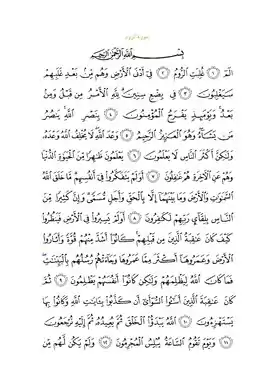 سورة الروم
بِسْمِ اللَّهِ الرَّحْمَٰنِ الرَّحِيمِ
الٓمٓ ۝١ غُلِبَتِ الرُّومُ ۝٢ فِي أَدْنَى الْأَرْضِ وَهُم مِّن بَعْدِ غَلَبِهِمْ
سَيَغْلِبُونَ ۝٣ فِي بِضْعِ سِنِينَ ۗ لِلَّهِ الْأَمْرُ مِن قَبْلُ وَمِن
بَعْدُ ۚ وَيَوْمَئِذٍ يَفْرَحُ الْمُؤْمِنُونَ ۝٤ بِنَصْرِ اللَّهِ ۚ يَنصُرُ
مَن يَشَاءُ ۖ وَهُوَ الْعَزِيزُ الرَّحِيمُ ۝٥ وَعْدَ اللَّهِ ۖ لَا يُخْلِفُ اللَّهُ وَعْدَهُ
وَلَٰكِنَّ أَكْثَرَ النَّاسِ لَا يَعْلَمُونَ ۝٦ يَعْلَمُونَ ظَاهِرًا مِّنَ الْحَيَوٰةِ الدُّنْيَا
وَهُمْ عَنِ الْآخِرَةِ هُمْ غَافِلُونَ ۝٧ أَوَلَمْ يَتَفَكَّرُوا فِي أَنفُسِهِم ۗ مَّا خَلَقَ اللَّهُ
السَّمَٰوَٰتِ وَالْأَرْضَ وَمَا بَيْنَهُمَا إِلَّا بِالْحَقِّ وَأَجَلٍ مُّسَمًّى ۗ وَإِنَّ كَثِيرًا مِّنَ
النَّاسِ بِلِقَاءِ رَبِّهِمْ لَكَافِرُونَ ۝٨ أَوَلَمْ يَسِيرُوا فِي الْأَرْضِ فَيَنظُرُوا
كَيْفَ كَانَ عَاقِبَةُ الَّذِينَ مِن قَبْلِهِمْ ۚ كَانُوا أَشَدَّ مِنْهُمْ قُوَّةً وَأَثَارُوا
الْأَرْضَ وَعَمَرُوهَا أَكْثَرَ مِمَّا عَمَرُوهَا وَجَاءَتْهُمْ رُسُلُهُم بِالْبَيِّنَاتِ
فَمَا كَانَ اللَّهُ لِيَظْلِمَهُمْ وَلَٰكِن كَانُوا أَنفُسَهُمْ يَظْلِمُونَ ۝٩ ثُمَّ
كَانَ عَاقِبَةَ الَّذِينَ أَسَاءُوا السُّوأَىٰ أَن كَذَّبُوا بِآيَاتِ اللَّهِ وَكَانُوا بِهَا
يَسْتَهْزِءُونَ ۝١٠ اللَّهُ يَبْدَؤُا الْخَلْقَ ثُمَّ يُعِيدُهُ ثُمَّ إِلَيْهِ تُرْجَعُونَ
۝١١ وَيَوْمَ تَقُومُ السَّاعَةُ يُبْلِسُ الْمُجْرِمُونَ ۝١٢ وَلَمْ يَكُن لَّهُم